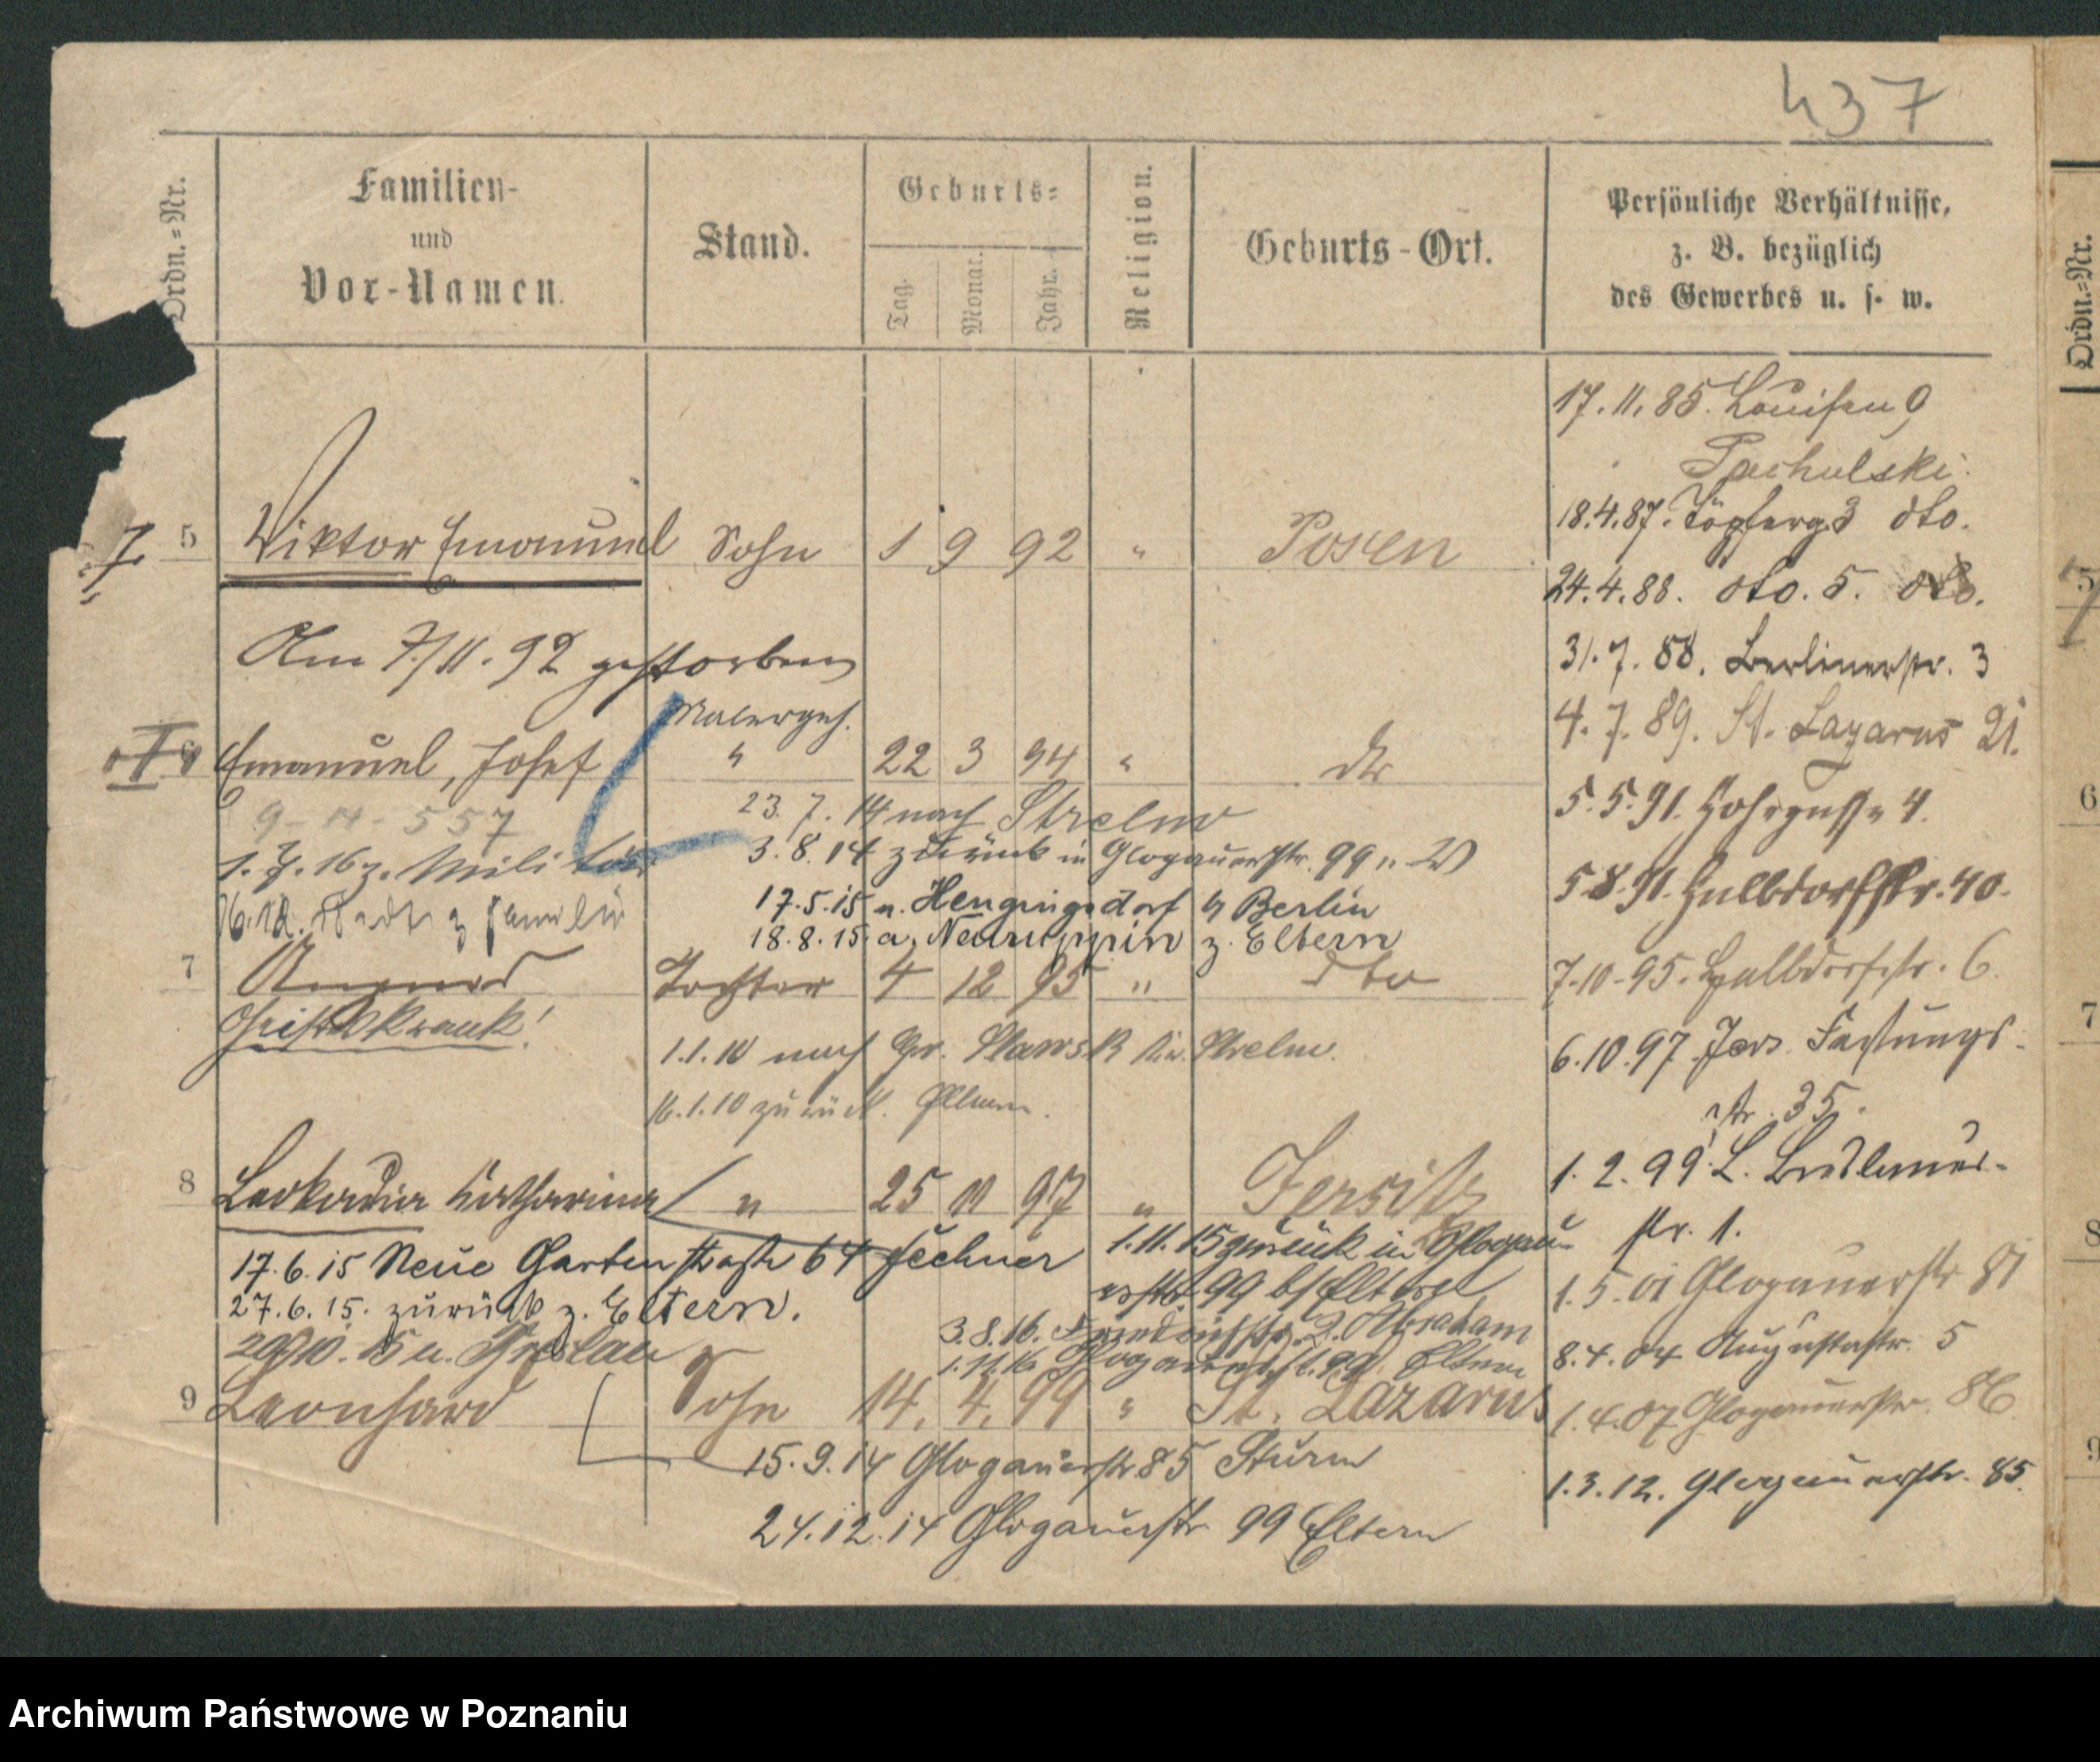 437
Ordn.-Nr.
Familien-
und
Vor-Namen.
Stand.
Geburts-
Tag.
Monat.
Jahr.
Religion.
Geburts-Ort.
Persönliche Verhältnisse,
z. B. bezüglich
des Gewerbes u. s. w.
Ordn.-Nr.
17.11.85. Louisen 9
Pacholski.
18.4.87. Töpferg. 3 dto.
24.4.88. dto. 5. dto.
31.7.88. Berlinerstr. 3
4.7.89. St. Lazarus 21.
5.5.91. 4.
5.8.91. Halbdorfstr. 40.
7.10.95. Halbdorfstr. 6.
6.10.97. Jers. Festungs-
str. 35.
1.2.99. L. Breslauer-
str. 1.
1.5.01 Glogauerstr 81
8.4.04 Augustastr. 5
1.4.07 Glogauerstr. 86
1.3.12. Glogauerstr. 85.
5 Viktor Emanuel Sohn 1 9 92 " Posen
Am 7/11.92 gestorben
Malergeh.
6 Emanuel, Josef " 22 3 94 " dto
9-14-557
23.7.14 nach Strelno
3.8.14 zurück in Glogauerstr. 99
1.7.16 z. Militär
17.5.15 n. Hennigsdorf b Berlin
z Familie
18.8.15. a. Neuruppin z. Eltern
7 Tochter 4 12 95 " dto
Geisteskrank!
1.1.10 nach Gr. Slawsk Kr. Strelno.
16.1.10 zurück. Eltern.
8 Leokadia Katharina " 25 11 97 " Jersitz
17.6.15 Neue Gartenstraße 64 Fechner
1.11.15 zurück in Glogau-
erstr 99 b/Eltern
27.6.15. zurück z. Eltern.
3.8.16. Abraham
29.10.15 n. Breslau
1.11.16 Glogauerstr. 99 Eltern
9 Leonhard Sohn 14. 4. 99 " St. Lazarus
15.9.14 Glogauerstr 85 Sturm
24.12.14 Glogauerstr 99 Eltern
5
6
7
8
9
Archiwum Państwowe w Poznaniu